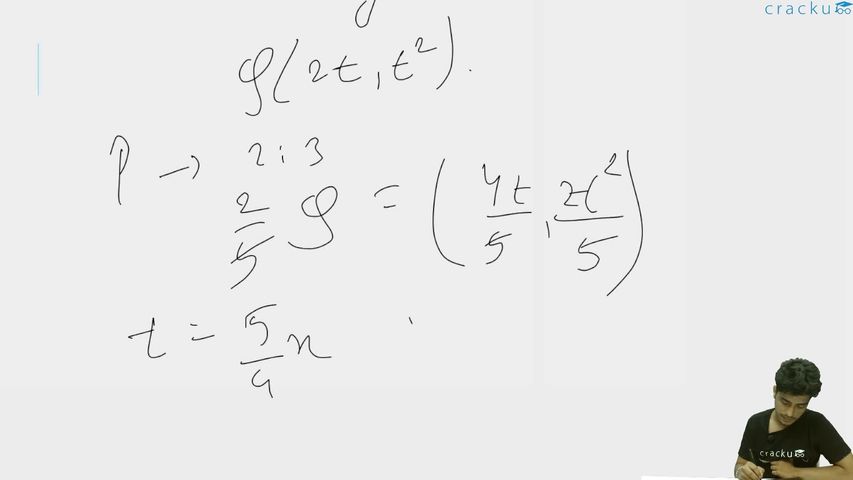 cracku
Q(2t, t²).
P → 2:3
2/5 Q = (4t/5, 2t²/5)
t = 5/4 x
cracku